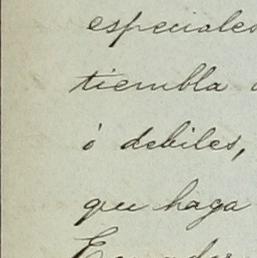 especiales
tiembla
ó debiles,
que haga
Ecuador